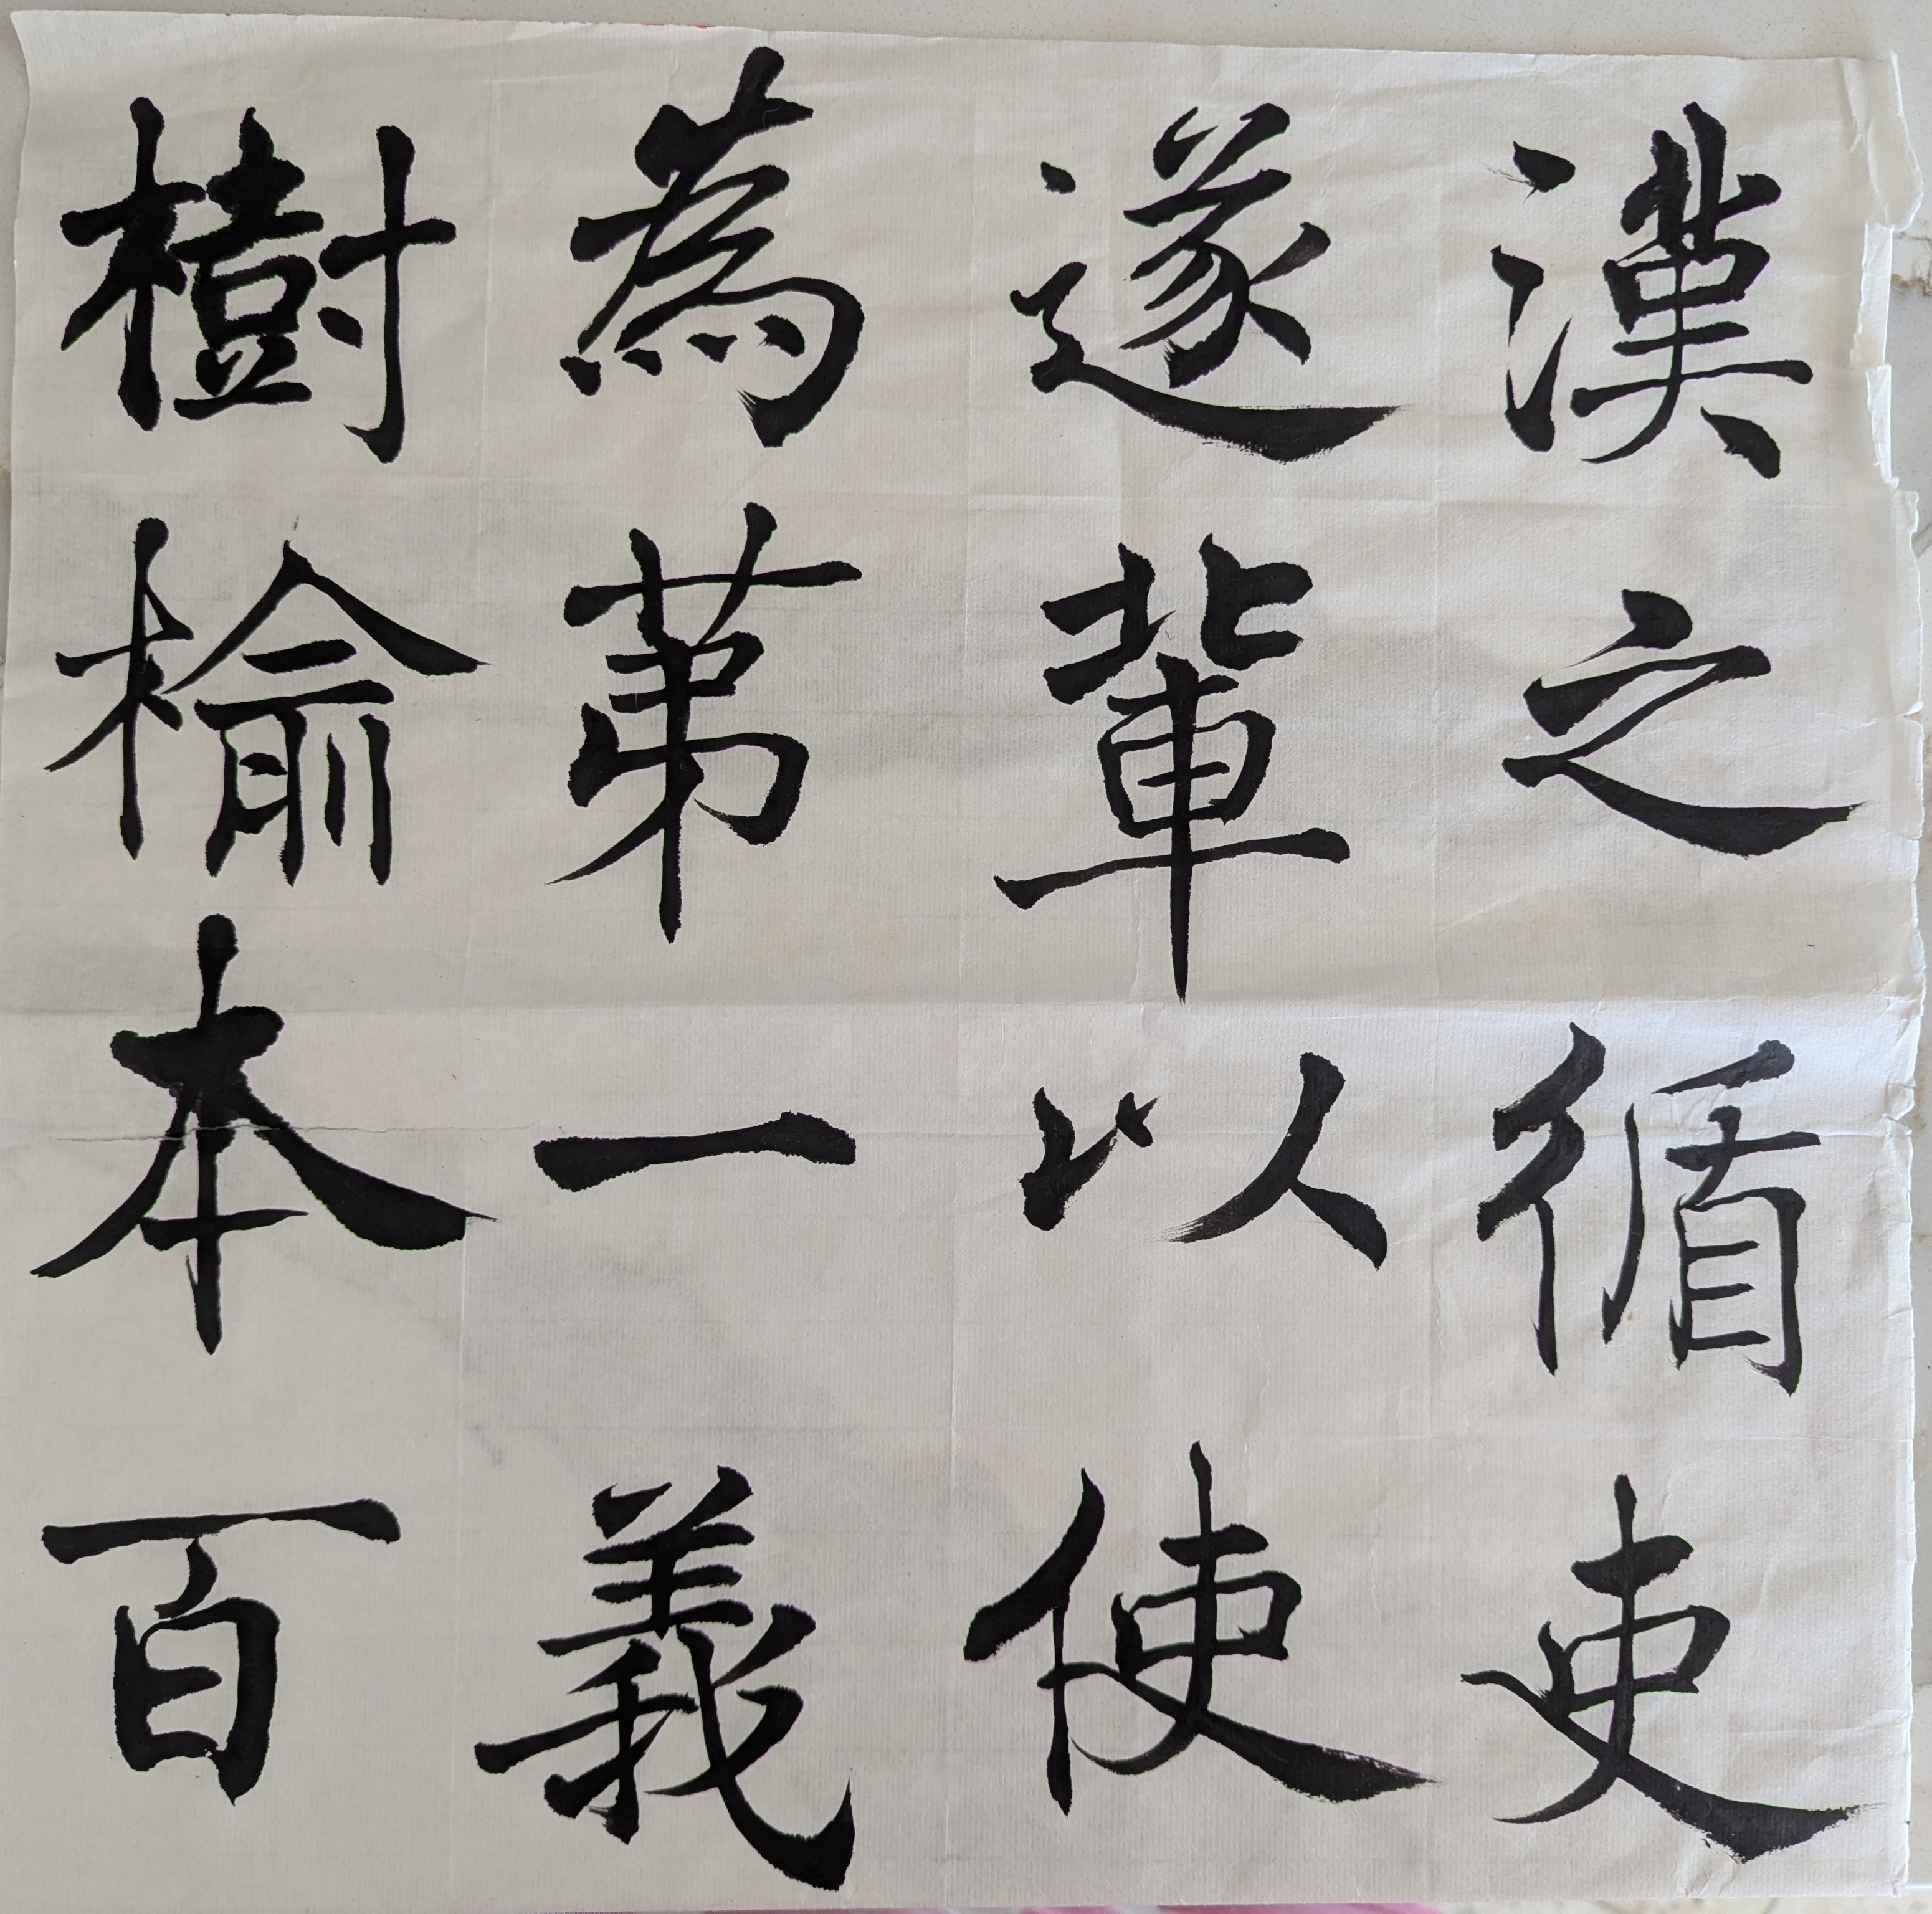 漢之循吏
遂輩以使
為第一義
樹榆本百